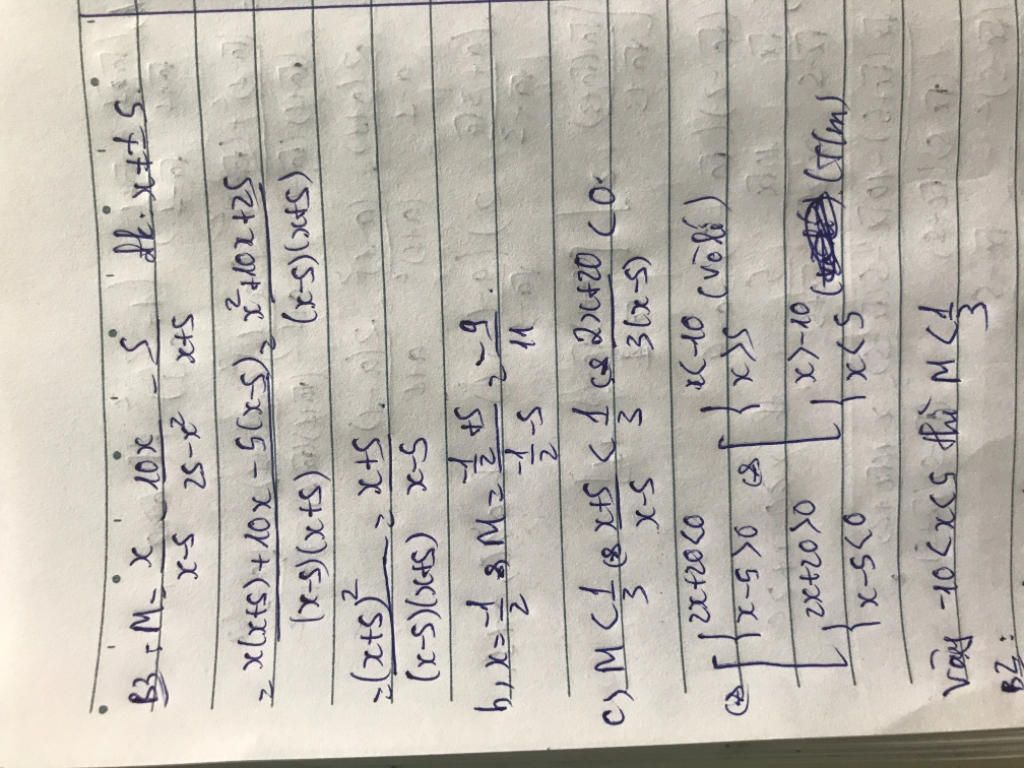 B3: M = x/(x-5) - 10x/(25-x²) - 5/(x+5) đk: x ≠ ± 5
= (x(x+5)+10x-5(x-5))/((x-5)(x+5)) = (x²+10x+25)/((x-5)(x+5))
= (x+5)²/((x-5)(x+5)) = (x+5)/(x-5)
b, x = -1/2 => M = (-1/2+5)/(-1/2-5) = -9/11.
c) M < 1/3 <=> (x+5)/(x-5) < 1/3 <=> (2x+20)/(3(x-5)) < 0.
<=> [ { 2x+20<0 [ { x<-10
x-5>0 <=> x>5 (vô lí)
{ 2x+20>0 { x>-10
x-5<0 x<5 (T/m)
Vậy -10<x<5 thì M < 1/3
B2: